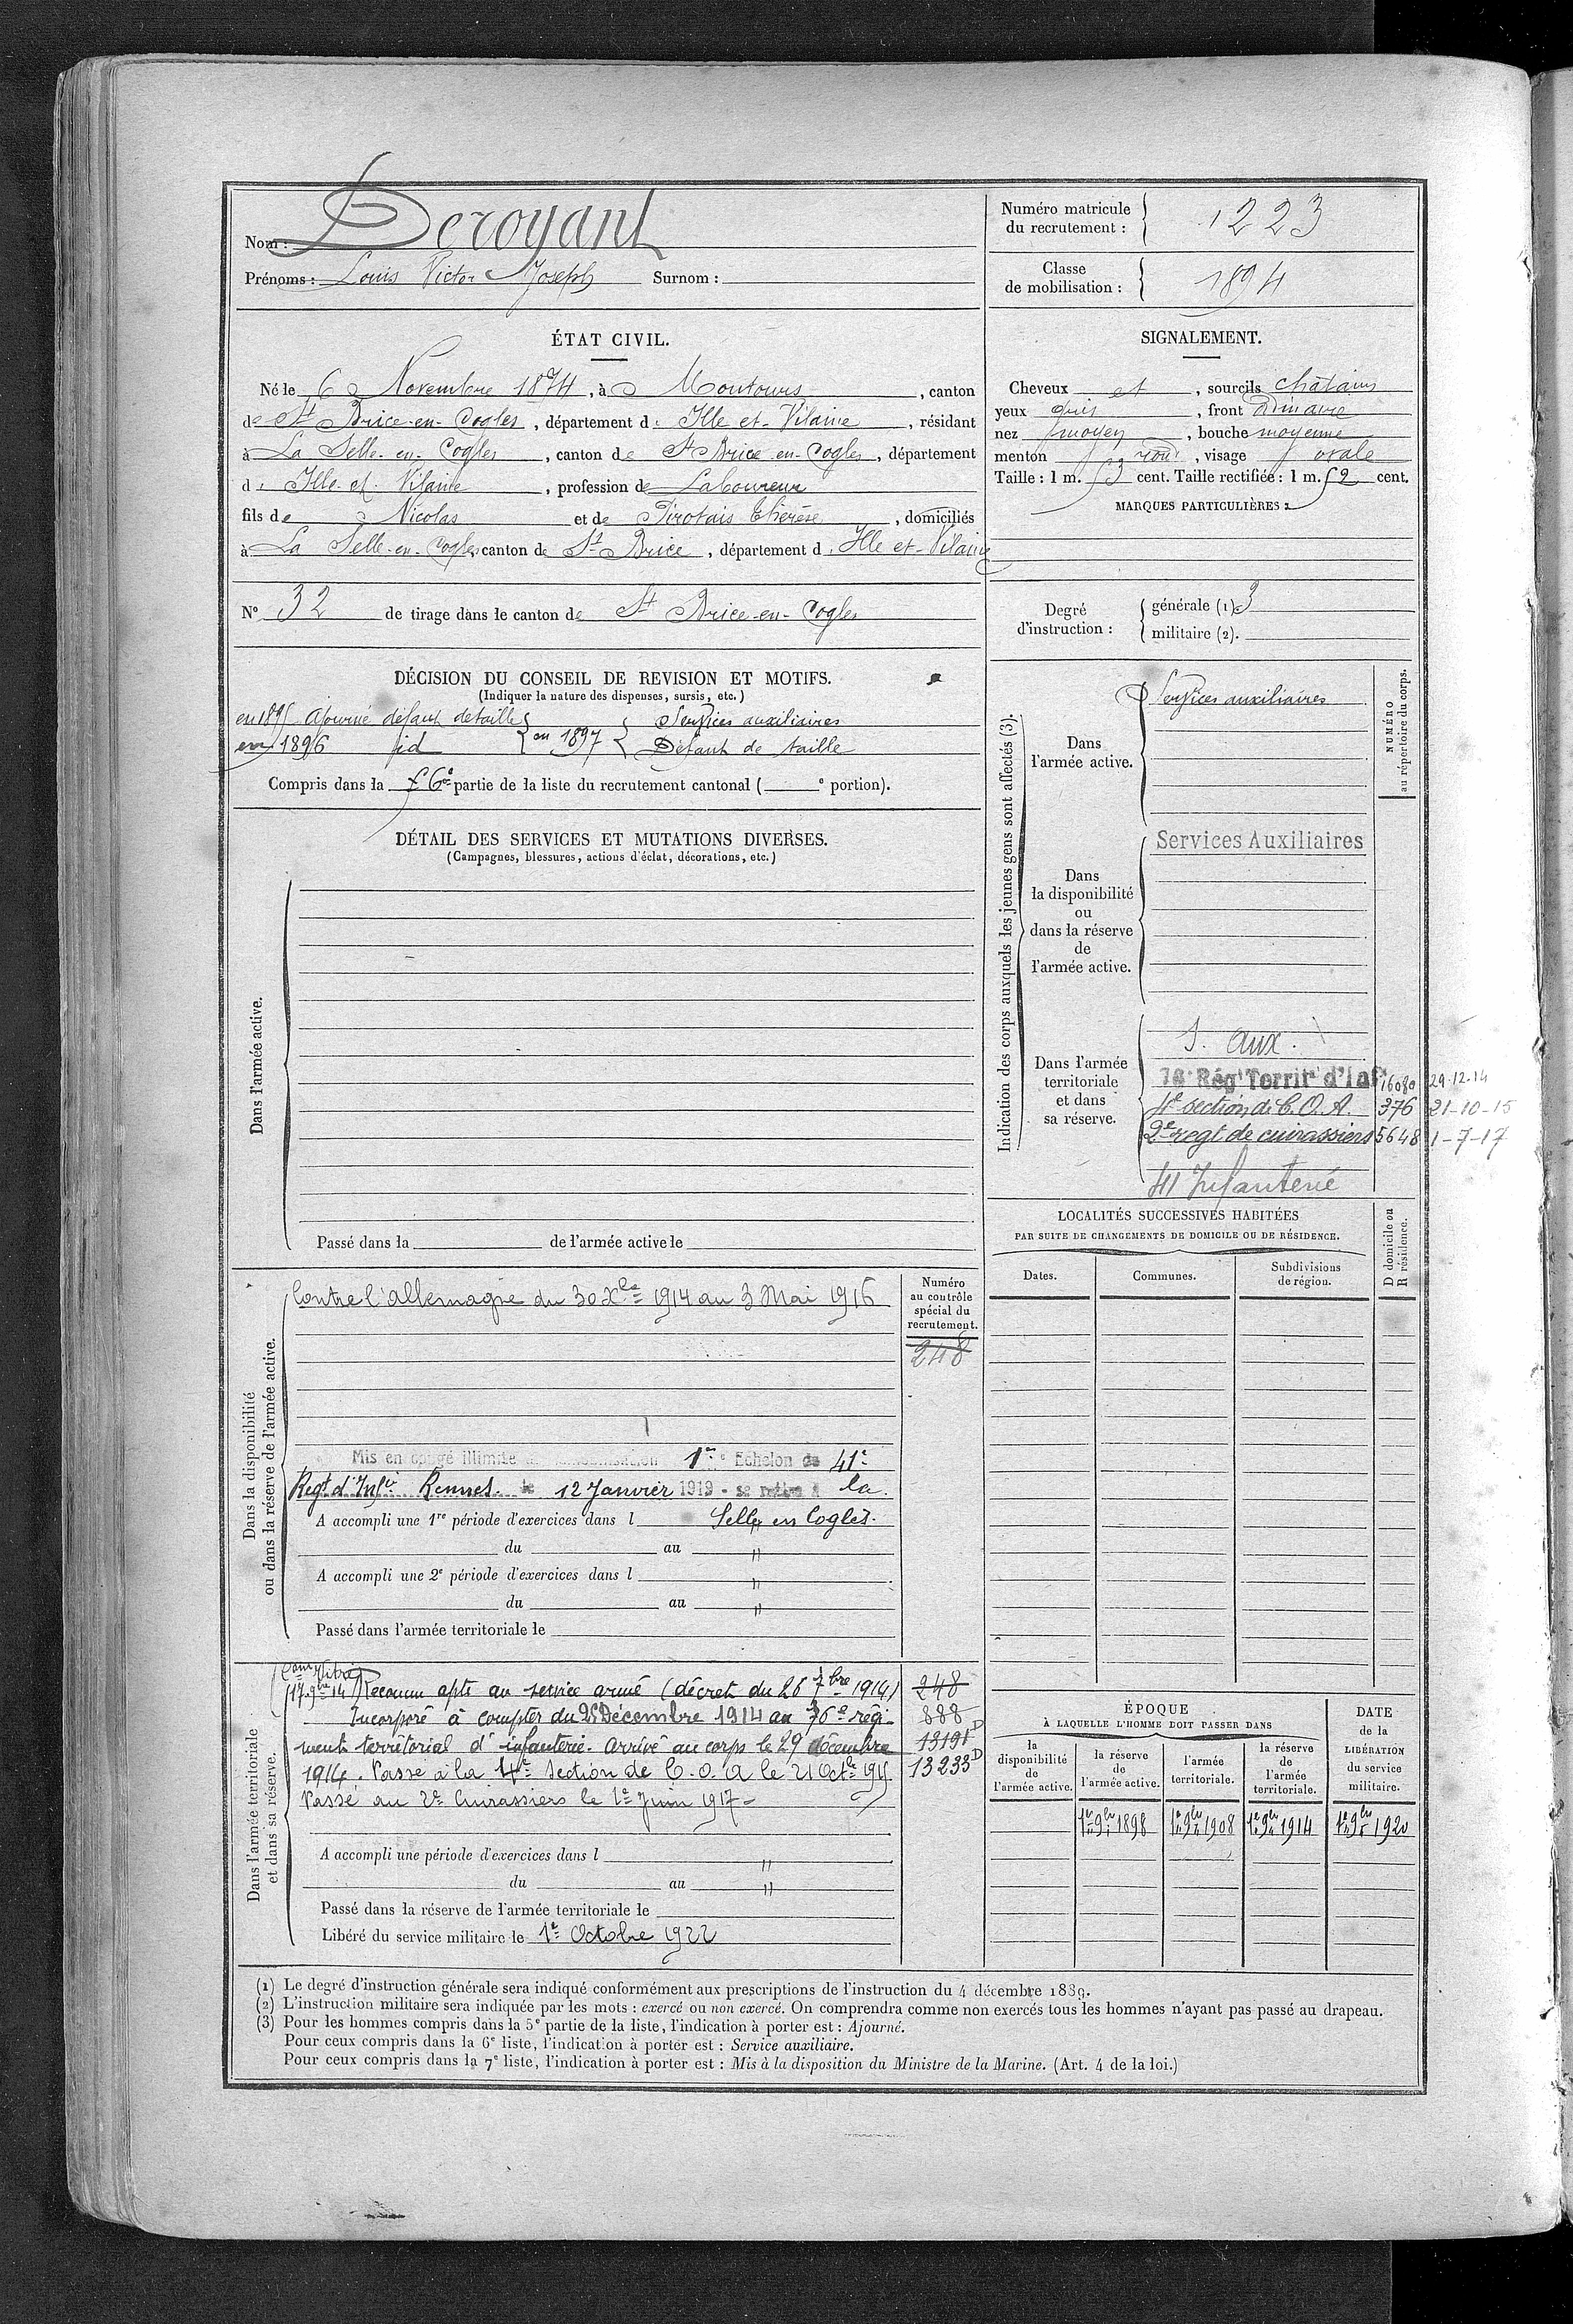 Nom : Deroyant
Prénoms : Louis Victor Joseph Surnom :
Numéro matricule du recrutement : 1223
Classe de mobilisation : 1894
ÉTAT CIVIL.
Né le 6 Novembre 1874, à Montours, canton
de St Brice-en-Cogles, département d Ille et-Vilaine, résidant
à La Selle-en-Cogles, canton de St Brice-en-Cogles, département
d Ille et Vilaine, profession de Laboureur
fils de Nicolas et de Pirotais Thérèse, domiciliés
à La Selle-en-Cogles, canton de St Brice, département d Ille et-Vilaine
SIGNALEMENT.
Cheveux et, sourcils châtains
yeux gris, front ordinaire
nez moyen, bouche moyenne
menton rond, visage ovale
Taille : 1 m. 53 cent. Taille rectifiée : 1 m. 52 cent.
MARQUES PARTICULIÈRES :
N° 32 de tirage dans le canton de St Brice-en-Cogles
Degré d'instruction :
générale (1). 3
militaire (2).
DÉCISION DU CONSEIL DE REVISION ET MOTIFS.
(Indiquer la nature des dispenses, sursis, etc.)
en 1895 Ajourné défaut de taille
en 1896 id
en 1897 Services auxiliaires
Défaut de taille
Compris dans la 6e partie de la liste du recrutement cantonal ( e portion).
DÉTAIL DES SERVICES ET MUTATIONS DIVERSES.
(Campagnes, blessures, actions d'éclat, décorations, etc.)
Dans l'armée active.
Passé dans la de l'armée active le
Indication des corps auxquels les jeunes gens sont affectés (3).
NUMÉRO au répertoire du corps.
Dans l'armée active.
Services auxiliaires
Dans la disponibilité ou dans la réserve de l'armée active.
Services Auxiliaires
Dans l'armée territoriale et dans sa réserve.
S. aux.
76e Régt Territ d'Inf 16080 29-12-14
4e section de C.O.A. 376 21-10-15
2e regt de cuirassiers 5648 1-7-17
41 Infanterie
LOCALITÉS SUCCESSIVES HABITÉES
PAR SUITE DE CHANGEMENTS DE DOMICILE OU DE RÉSIDENCE.
Dates.
Communes.
Subdivisions de région.
D domicile ou R résidence.
Dans la disponibilité ou dans la réserve de l'armée active.
Contre l'Allemagne du 30 Xbre 1914 au 3 Mai 1916
Numéro au contrôle spécial du recrutement.
248
Mis en congé illimité 1er Echelon de 41e
Regt d'Infie Rennes le 12 Janvier 1919 - se retire à la
A accompli une 1re période d'exercices dans l Selle en Cogles.
du au "
A accompli une 2e période d'exercices dans l "
du au "
Passé dans l'armée territoriale le
Dans l'armée territoriale et dans sa réserve.
(17 9bre 14) Reconnu apte au service armé (décret du 26 7bre 1914) 248
Incorporé à compter du 25 Décembre 1914 au 76e régi- 888
ment territorial d'infanterie. Arrivé au corps le 29 décembre 13191 D
1914. Passé à la 4e section de C.O.A le 21 Octbre 1915 13233 D
Passé au 2e Cuirassiers le 1er Juin 1917-
A accompli une période d'exercices dans l "
du au "
Passé dans la réserve de l'armée territoriale le
Libéré du service militaire le 1er Octobre 1922
ÉPOQUE
À LAQUELLE L'HOMME DOIT PASSER DANS
la disponibilité de l'armée active.
la réserve de l'armée active.
l'armée territoriale.
la réserve de l'armée territoriale.
DATE de la LIBÉRATION du service militaire.
1er 9bre 1898
1er 9bre 1908
1er 9bre 1914
1er 9bre 1920
(1) Le degré d'instruction générale sera indiqué conformément aux prescriptions de l'instruction du 4 décembre 1889.
(2) L'instruction militaire sera indiquée par les mots : exercé ou non exercé. On comprendra comme non exercés tous les hommes n'ayant pas passé au drapeau.
(3) Pour les hommes compris dans la 5e partie de la liste, l'indication à porter est : Ajourné.
Pour ceux compris dans la 6e liste, l'indication à porter est : Service auxiliaire.
Pour ceux compris dans la 7e liste, l'indication à porter est : Mis à la disposition du Ministre de la Marine. (Art. 4 de la loi.)